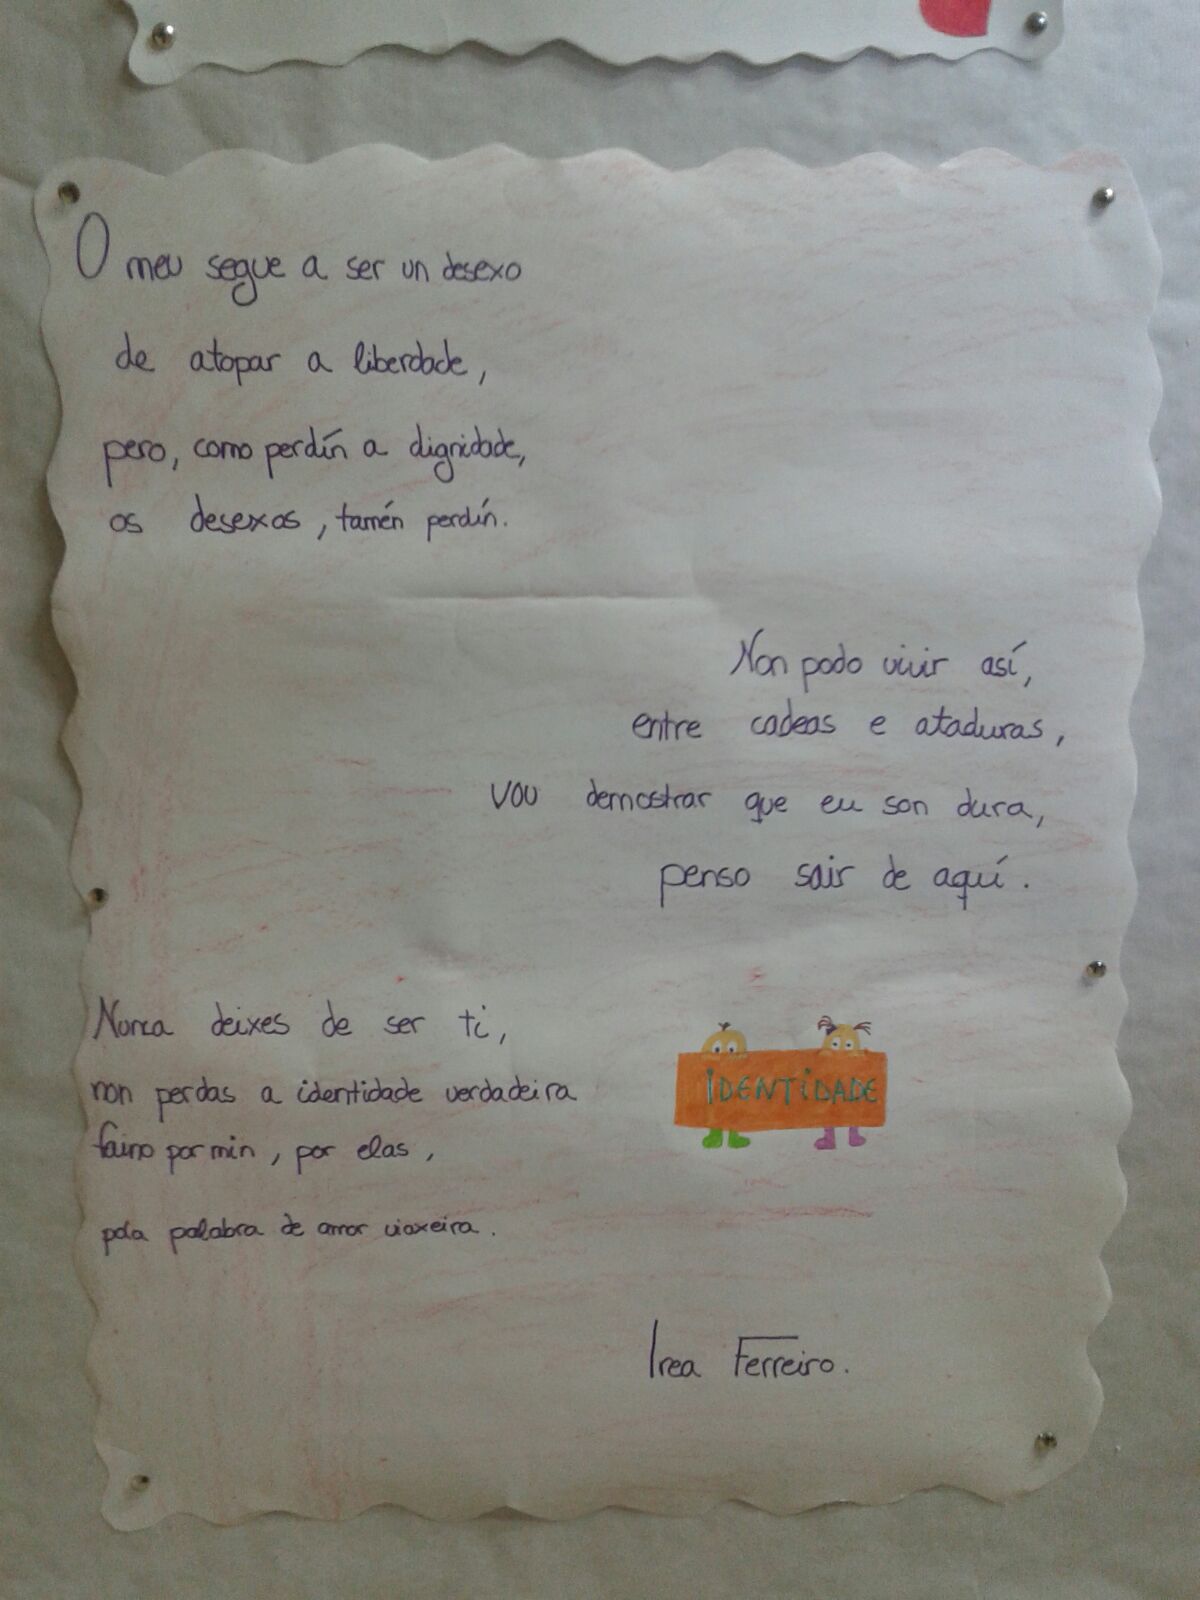 O meu segue a ser un desexo
de atopar a liberdade,
pero, como perdín a dignidade,
os desexos, tamén perdín.
Non podo vivir así,
entre cadeas e ataduras,
vou demostrar que eu son dura,
penso sair de aquí.
Nunca deixes de ser ti,
non perdas a identidade verdadeira
faino por min, por elas,
pola palabra de amor viaxeira.
IDENTIDADE
Irea Ferreiro.